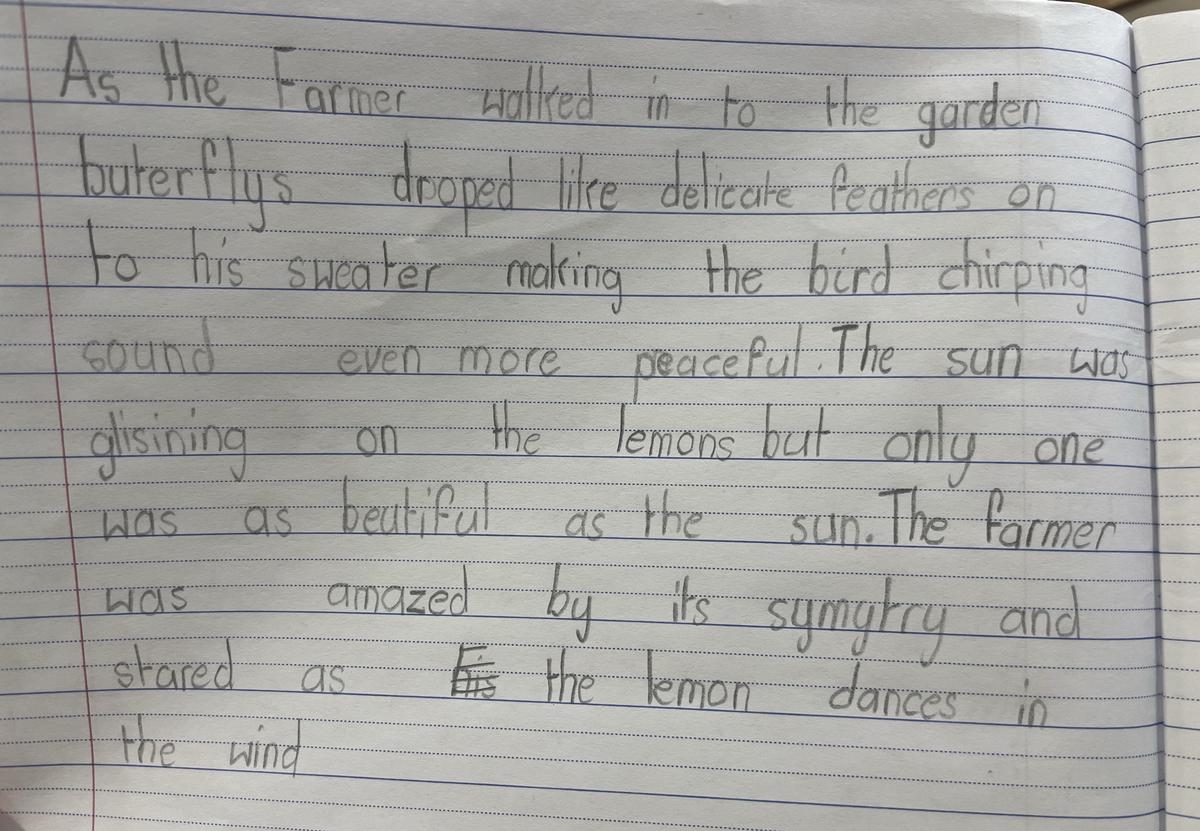 As the Farmer walked in to the garden
buterflys droped like delicate feathers on
to his sweater making the bird chirping
sound even more peaceful. The sun was
glisining on the lemons but only one
was as beutiful as the sun. The farmer
was amazed by its symytry and
stared as the lemon dances in
the wind